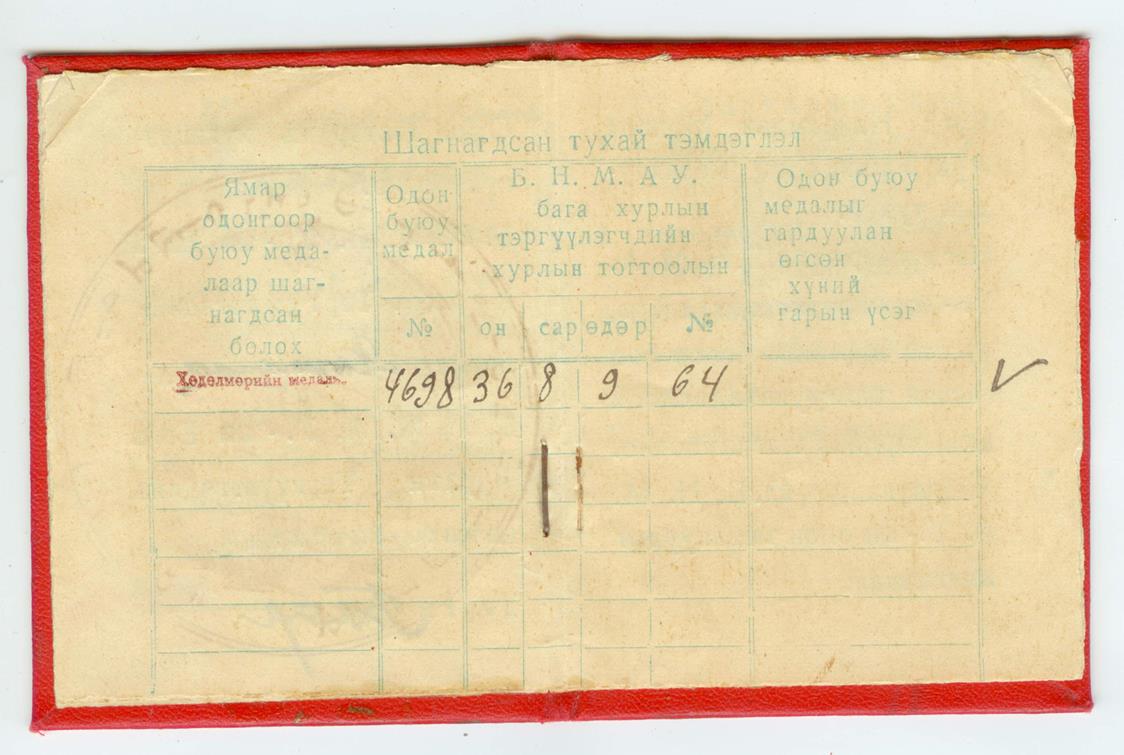 Шагнагдсан тухай тэмдэглэл
Ямар
одонгоор
буюу меда-
лаар шаг-
нагдсан
болох
Одон
буюу
медал
№
Б. Н. М. А У.
бага хурлын
тэргүүлэгчдийн
хурлын тогтоолын
он сар өдөр №
Одон буюу
медалыг
гардуулан
өгсөн
хүний
гарын үсэг
Хөдөлмөрийн медаль 4698 36 8 9 64